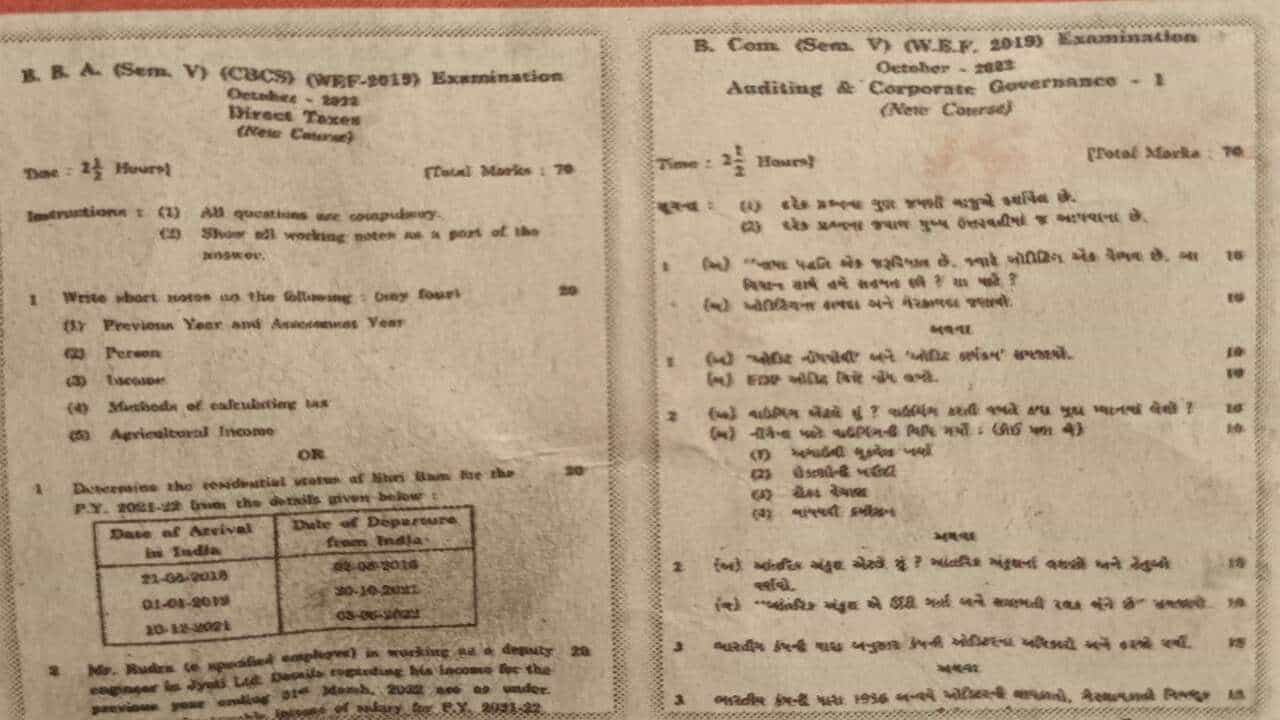 B. B. A. (Sem. V) (CBCS) (WEF-2019) Examination
October - 2022
Direct Taxes
(New Course)
Time : 2 1/2 Hours]
[Total Marks : 70
Instructions : (1) All questions are compulsory.
(2) Show all working notes as a part of the
answer.
1 Write short notes on the following : (any four) 20
(1) Previous Year and Assessment Year
(2) Person
(3) Income
(4) Methods of calculating tax
(5) Agricultural Income
OR
1 Determine the residential status of Shri Ram for the 20
P.Y. 2021-22 from the details given below :
Date of Arrival Date of Departure
in India from India
20-10-2021
10-12-2021
2 Mr. Rudra (a specified employee) is working as a deputy 20
engineer in Jyoti Ltd. Details regarding his income for the
previous year ending 31st March, 2022 are as under.
income of salary for P.Y. 2021-22
B. Com. (Sem. V) (W.E.F. 2019) Examination
October - 2022
Auditing & Corporate Governance - 1
(New Course)
Time : 2 1/2 Hours]
[Total Marks : 70
સૂચના : (1) દરેક પ્રશ્નના ગુણ જમણી બાજુએ દર્શાવેલ છે.
(2) દરેક પ્રશ્નના જવાબ મુખ્ય ઉત્તરવહીમાં જ આપવાના છે.
1 (અ) "નામા પદ્ધતિ એક જરૂરિયાત છે, જ્યારે ઓડિટિંગ એક વૈભવ છે. આ 10
વિધાન સાથે તમે સહમત છો ? શા માટે ?
(બ) ઓડિટિંગના ફાયદા અને ગેરફાયદા જણાવો. 10
અથવા
1 (અ) 'ઓડિટ નોંધપોથી' અને 'ઓડિટ કાર્યક્રમ' સમજાવો. 10
(બ) EDP ઓડિટ વિશે નોંધ લખો. 10
2 (અ) વાઉચિંગ એટલે શું ? વાઉચિંગ કરતી વખતે કયા મુદ્દા ધ્યાનમાં લેશો ? 10
(બ) નીચેના માટે વાઉચિંગની વિધિ વર્ણવો : (કોઈ પણ બે) 10
(1) અગાઉથી ચૂકવેલ ખર્ચા
(2) રોકાણોની ખરીદી
(3) રોકડ વેચાણ
(4)
અથવા
2 (અ) આંતરિક અંકુશ એટલે શું ? આંતરિક અંકુશનાં લક્ષણો અને હેતુઓ 10
વર્ણવો.
(બ) "આંતરિક અંકુશ એ 10
3 ભારતીય કંપની ધારા અનુસાર કંપની ઓડિટરના અધિકારો અને ફરજો વર્ણવો. 15
અથવા
3 ભારતીય કંપની ધારા 1956 અન્વયે ઓડિટરની લાયકાતો, ગેરલાયકાતો નિમણૂક 15